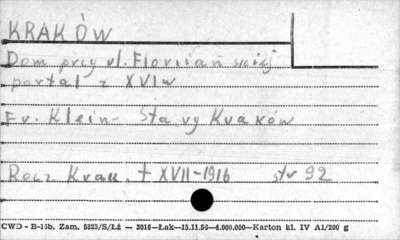 KRAKÓW
Dom przy ul. Floriańskiej
portal z XVI w
Fr. Klein - Stary Kraków
Rocz. Krak. t XVII-1916 str 92
CWD - B-15b. Zam. 5823/S/Łź — 3016—Łak—15.11.56—4.000.000—Karton kl. IV A1/200 g